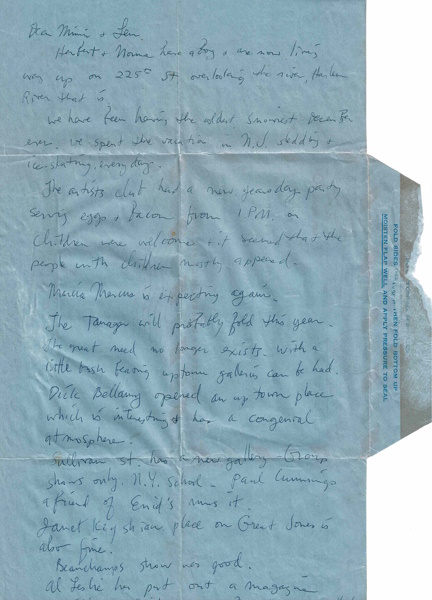 Dear Mimi + Len.
Herbert + Norma have a boy + are now living
way up on 225th St overlooking the river, Harlem
River that is.
We have been having the coldest snowiest December
ever. We spent the vacation in N.J. sledding +
ice-skating, every day.
The artists club had a new years day party
serving eggs + bacon from 1 P.M. on
Children were welcomed + it seemed that the
people with children mostly appeared.
Marcia Marcus is expecting again.
The Tanager will probably fold this year.
The great need no longer exists. With a
little push uptown galleries can be had.
Dick Bellamy opened an up town place
which is interesting + has a congenial
atmosphere.
Sullivan St. has a new gallery - Group
shows only. N.Y. School - Paul Cummings
a friend of Enid's runs it
Janet place on Great Jones is
also fine.
Beauchamps show was good.
Al Leslie has put out a magazine
FOLD SIDES THEN FOLD BOTTOM UP
MOISTEN FLAP WELL AND APPLY PRESSURE TO SEAL